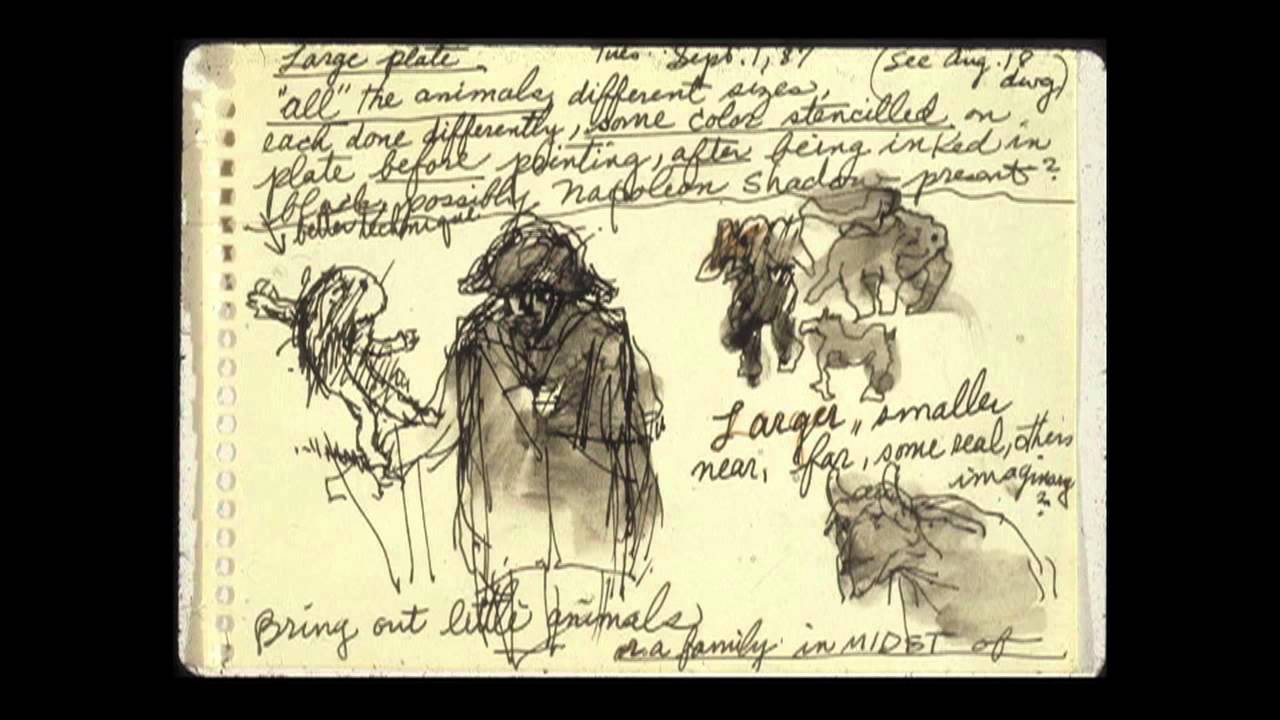 Large plate Tues. Sept. 1, 87 (See Aug. 18
dwg)
"all" the animals, different sizes,
each done differently, some color stencilled on
plate before printing, after being inked in
black, possibly Napoleon Shadow present?
better technique
Larger, smaller
near, far, some real, others
imaginary
?
Bring out little animals
or a family in MIDST of